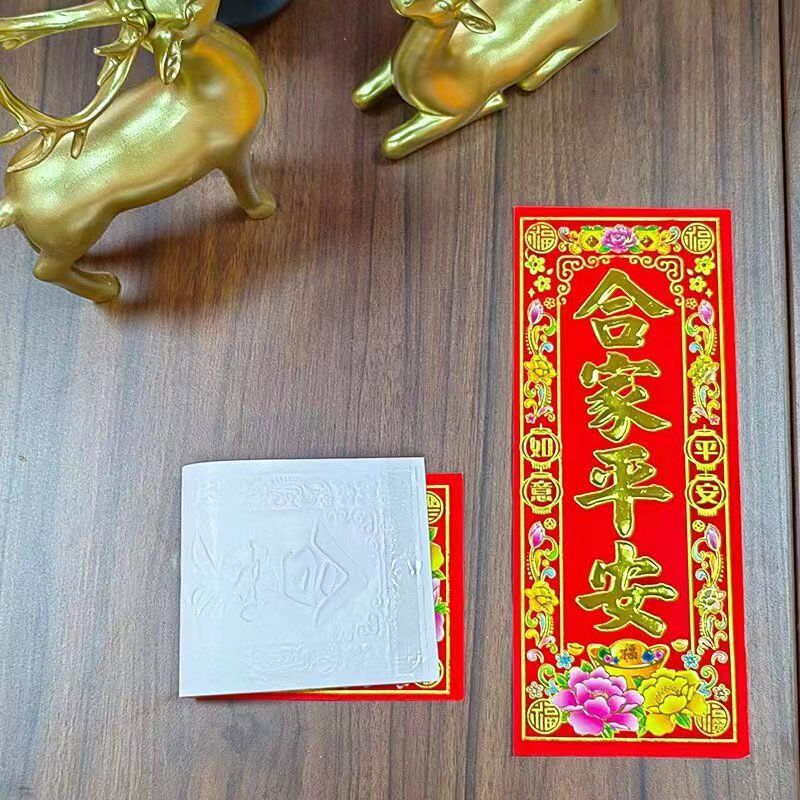 福 福
合家平安
如意
平安
福
福 福